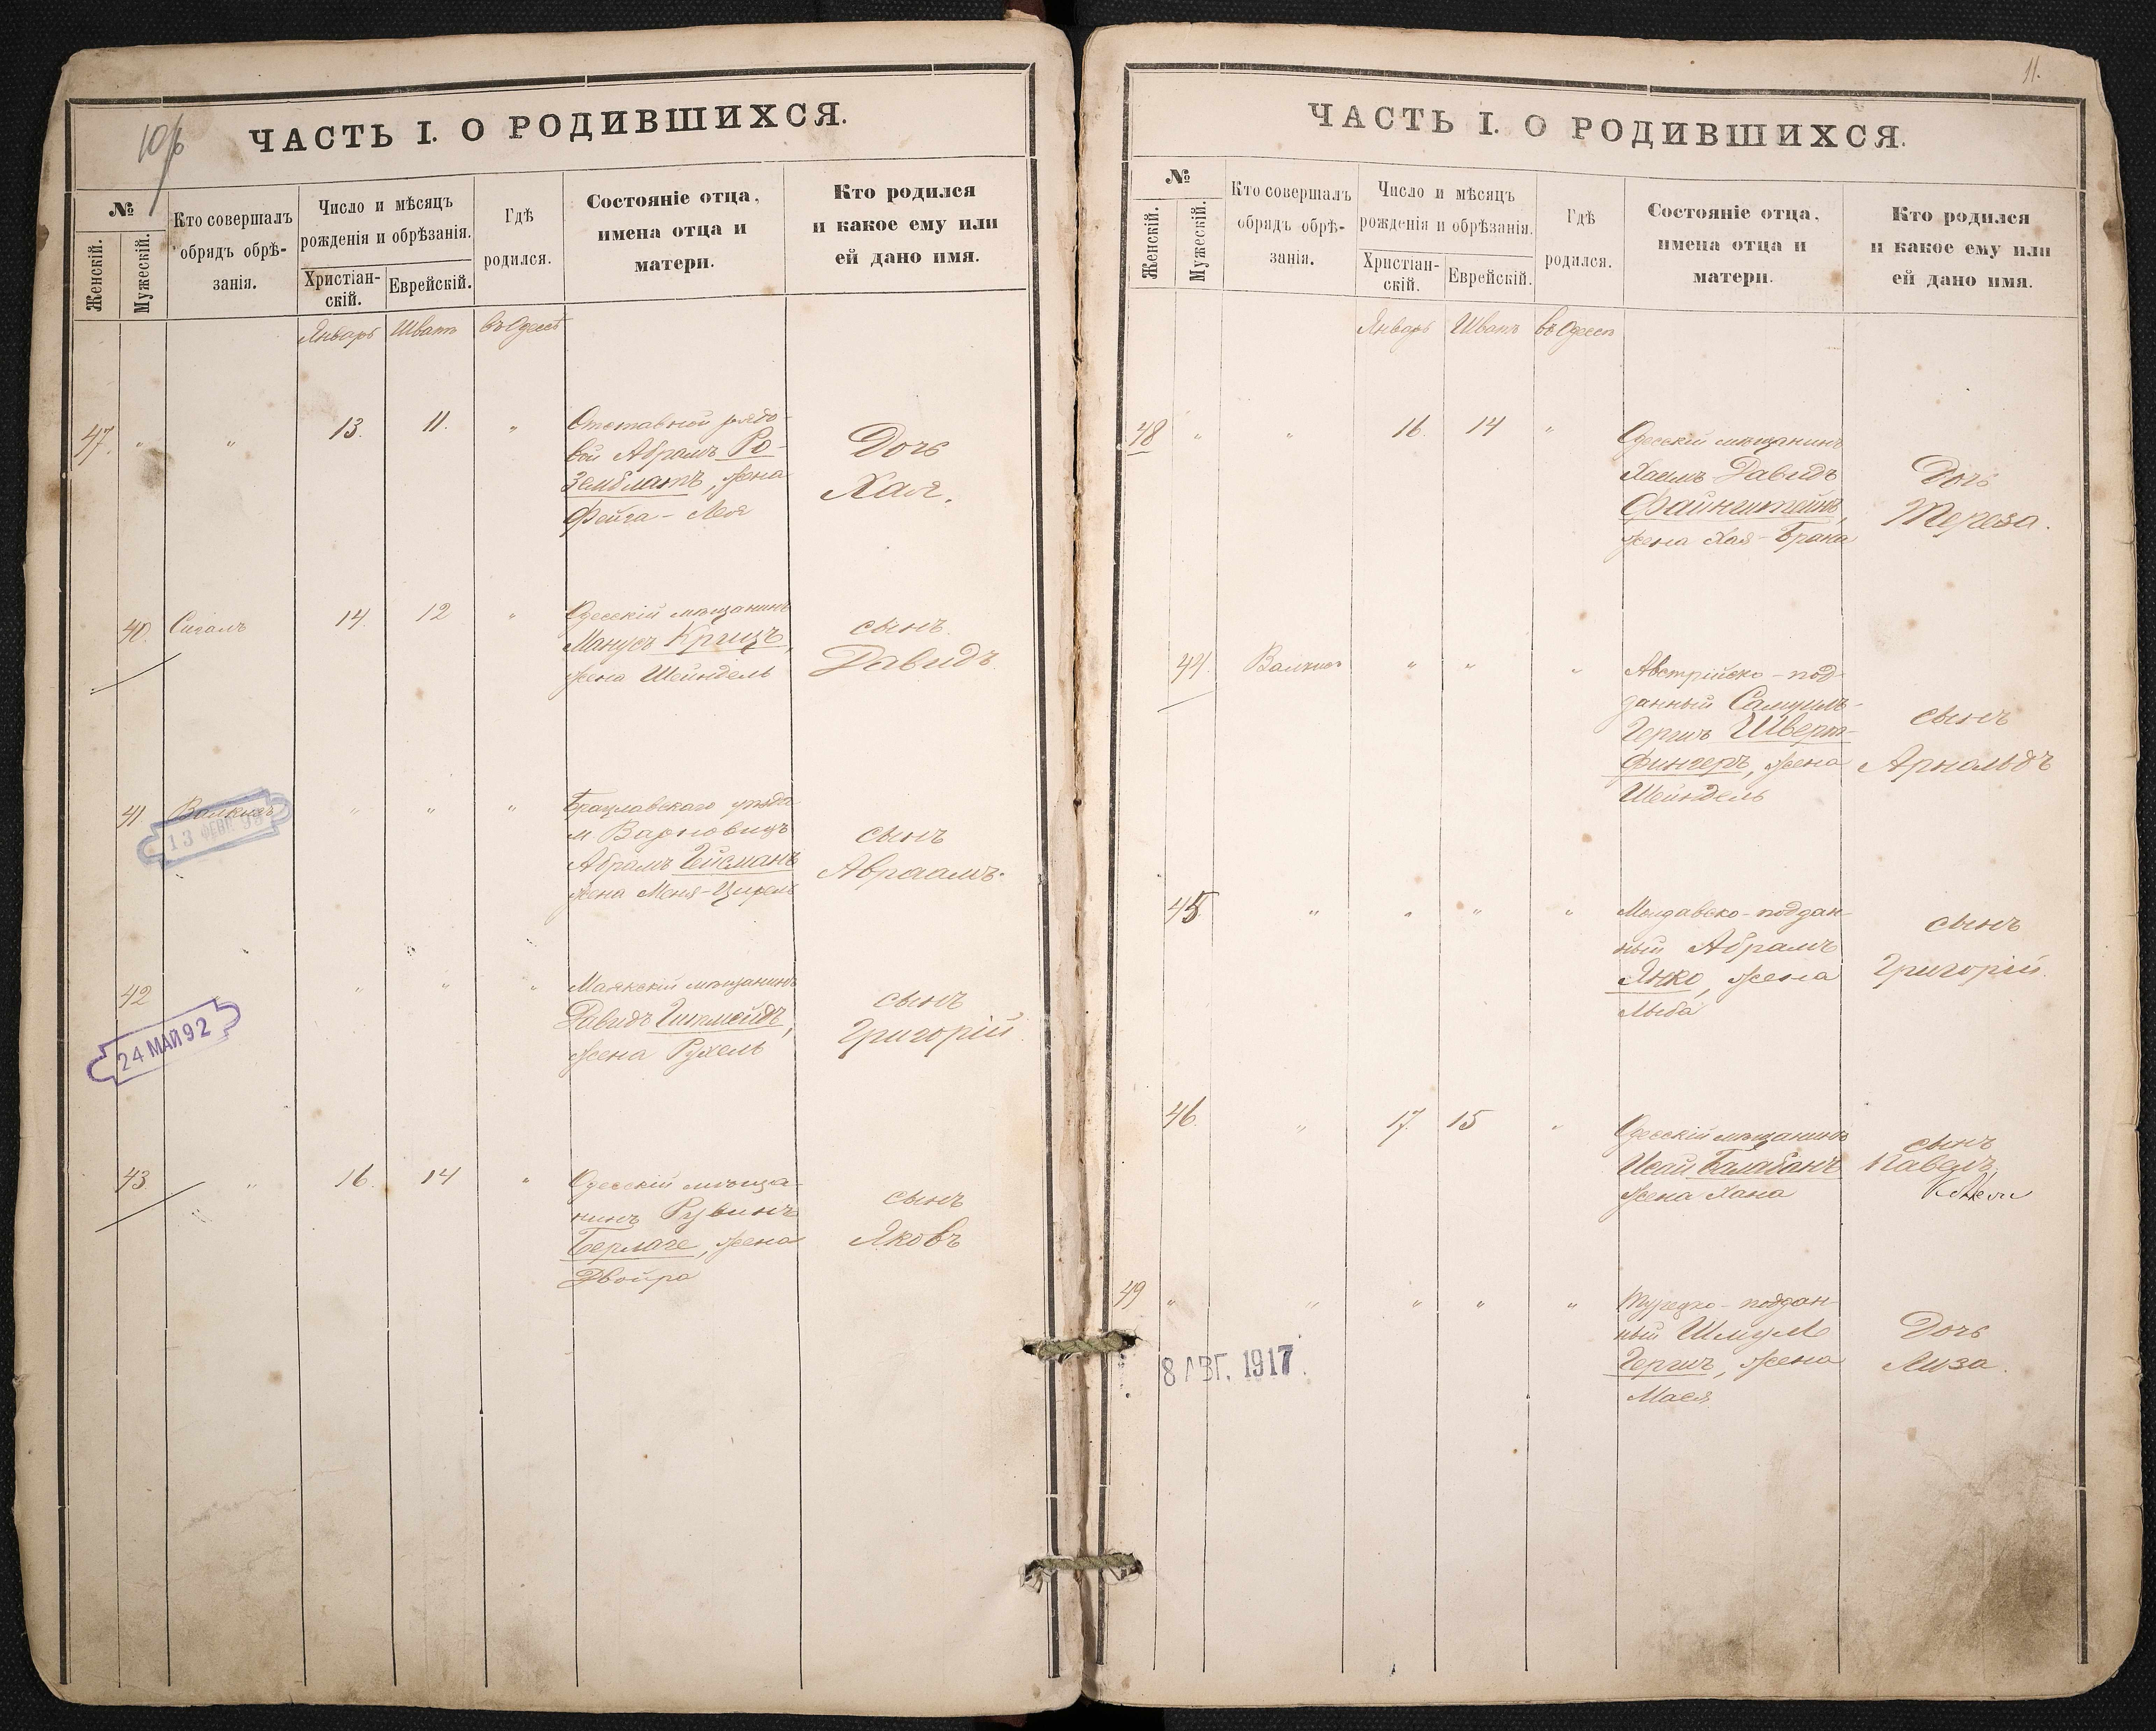 ЧАСТЬ I. О РОДИВШИХСЯ.
№
Женскій.
Мужескій.
Кто совершалъ
обрядъ обрѣ-
занія.
Число и мѣсяцъ
рожденія и обрѣзанія.
Христіан-
скій.
Еврейскій.
Гдѣ
родился.
Состояніе отца,
имена отца и
матери.
Кто родился
и какое ему или
ей дано имя.
Январь Шватъ въ Одессѣ
47. " " 13. 11. "
Отставной рядо-
вой Абрамъ Ро-
земблатъ, жена
Фейга - Лея
Дочь
Хая.
40. Сигалъ 14. 12 "
Одесскій мѣщанинъ
Манусъ Крицъ,
жена Шейндель
сынъ
Давидъ
41 " " "
13 ФЕВ
Брацлавскаго уѣзда
м.
Абрамъ
жена Меня-
сынъ
Авраамъ.
42 " " "
24 МАЙ 92
Маякскій мѣщанинъ
Давидъ
жена Рухель
сынъ
Григорій
43 " 16. 14 "
Одесскій мѣща-
нинъ Рувинъ
Берлаге, жена
Двойра
сынъ
Яковъ
11.
ЧАСТЬ I. О РОДИВШИХСЯ.
№
Женскій.
Мужескій.
Кто совершалъ
обрядъ обрѣ-
занія.
Число и мѣсяцъ
рожденія и обрѣзанія.
Христіан-
скій.
Еврейскій.
Гдѣ
родился.
Состояніе отца,
имена отца и
матери.
Кто родился
и какое ему или
ей дано имя.
Январь Шватъ въ Одессѣ
48 " " 16. 14 "
Одесскій мѣщанинъ
Хаимъ-Давидъ
Файнштейнъ,
жена Хая-Брана
Дочь
Тереза.
44. " " "
Австрійско-под-
данный Самуилъ-
Гершъ Шверт-
фингеръ, жена
Шейндель
сынъ
Арнольдъ
45 " " " "
Молдавско-поддан-
ный Абрамъ
Янко, жена
сынъ
Григорій.
46. " 17. 15 "
Одесскій мѣщанинъ
Исай Балабанъ
жена Хана
сынъ
Павелъ
49 " " " " "
8 АВГ. 1917.
Турецко-поддан-
ный Шмуль
Гершъ, жена
Мася
Дочь
Лиза.